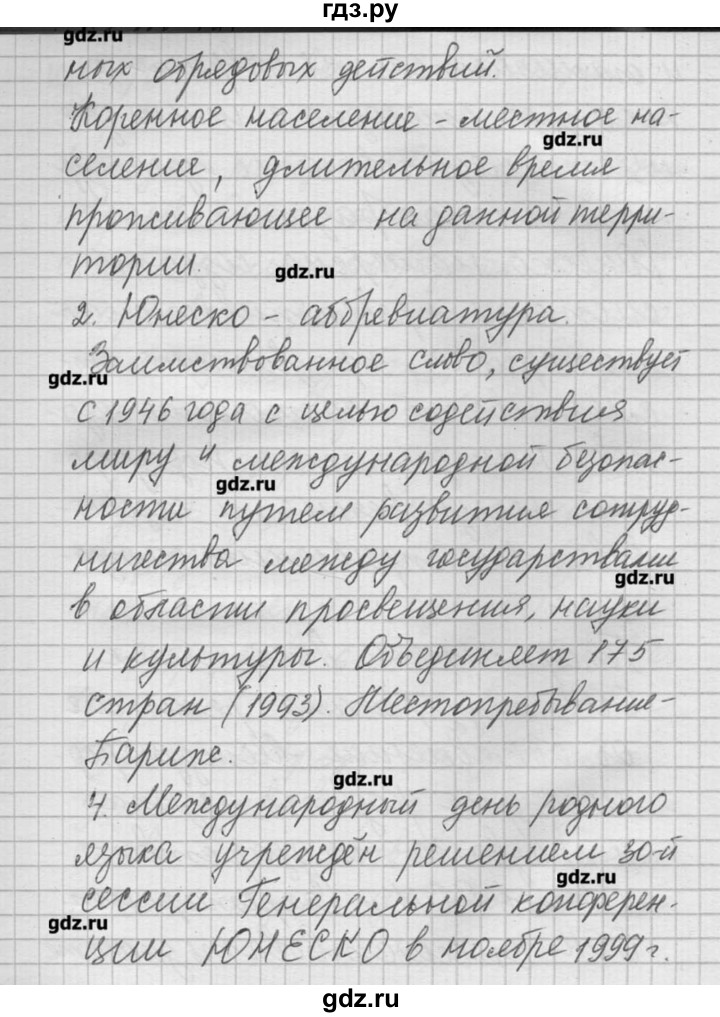 гдз.ру
gdz.ru
ных обрядовых действий.
Коренное население - местное на-
gdz.ru
селение, длительное время
проживающее на данной терри-
тории.
gdz.ru
2. Юнеско - аббревиатура.
Заимствованное слово, существует
gdz.ru
с 1946 года с целью содействия
миру и международной безопас-
gdz.ru
ности путем развития сотруд-
ничества между государствами
gdz.ru
в области просвещения, науки
и культуры. Объединяет 175
стран (1993). Местопребывание-
Париж.
gdz.ru
4. Международный день родного
языка учреждён решением 30-й
gdz.ru
сессии Генеральной конферен-
gdz.ru
ции ЮНЕСКО в ноябре 1999 г.
gdz.ru